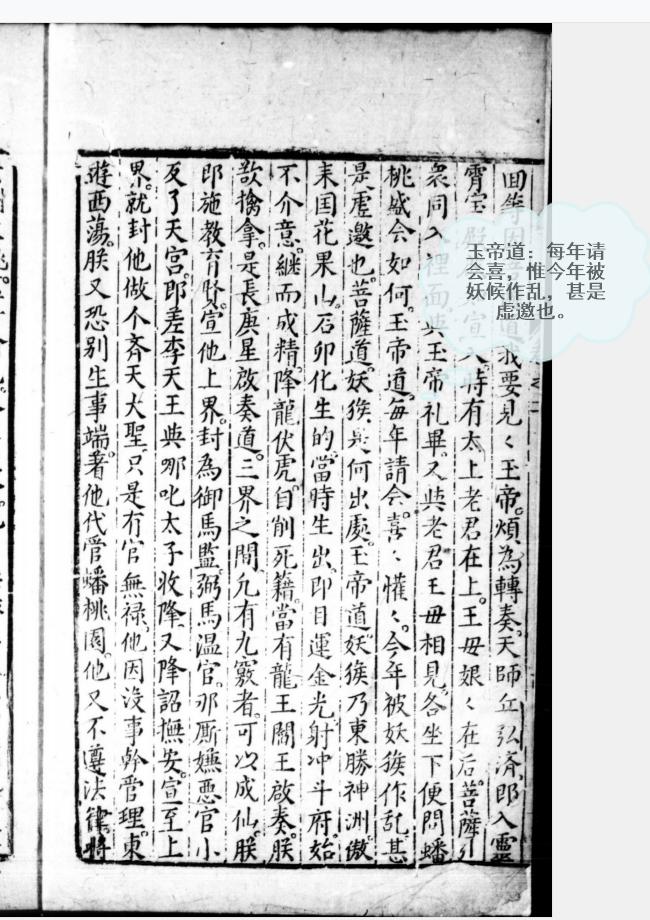 回等因道我要見〻玉帝。煩為轉奏。天師丘弘濟。即入靈
霄宝入。時有太上老君在上。王毋娘〻在后。菩薩引
衆同入裡面。與玉帝礼畢。又與老君王毋相見。各坐下便問蟠
桃盛会如何。玉帝道。每年請会。喜〻懽〻。今年被妖猴作乱。甚
是虚邀也。菩薩道。妖猴是何出處。玉帝道。妖猴乃東勝神洲傲
来国花果山。石卵化生的。當時生出。即目運金光。射冲斗府。始
不介意。継而成精。降龍伏虎。自削死籍。當有龍王閻王啟奏。朕
欲擒拿。是長庚星啟奏道。三界之間。凢有九竅者。可以成仙。朕
即施教育賢。宣他上界。封為御馬監。弼馬温官。那厮嫌惡官小
反了天宫。即差李天王與哪叱太子收降。又降詔撫安。宣至上
界。就封他做个齊天大聖。只是有官無禄。他因没事幹管理。東
遊西蕩。朕又恐别生事端。着他代管蟠桃園。他又不遵法律。將
玉帝道：每年请
会喜，惟今年被
妖候作乱，甚是
虚邀也。